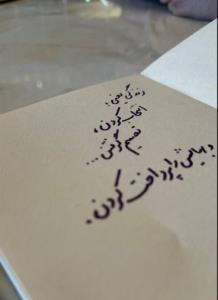 زندگی یعنی:
انتخاب کردن،
تصمیم گرفتن...
و بهایش را پرداخت کردن.